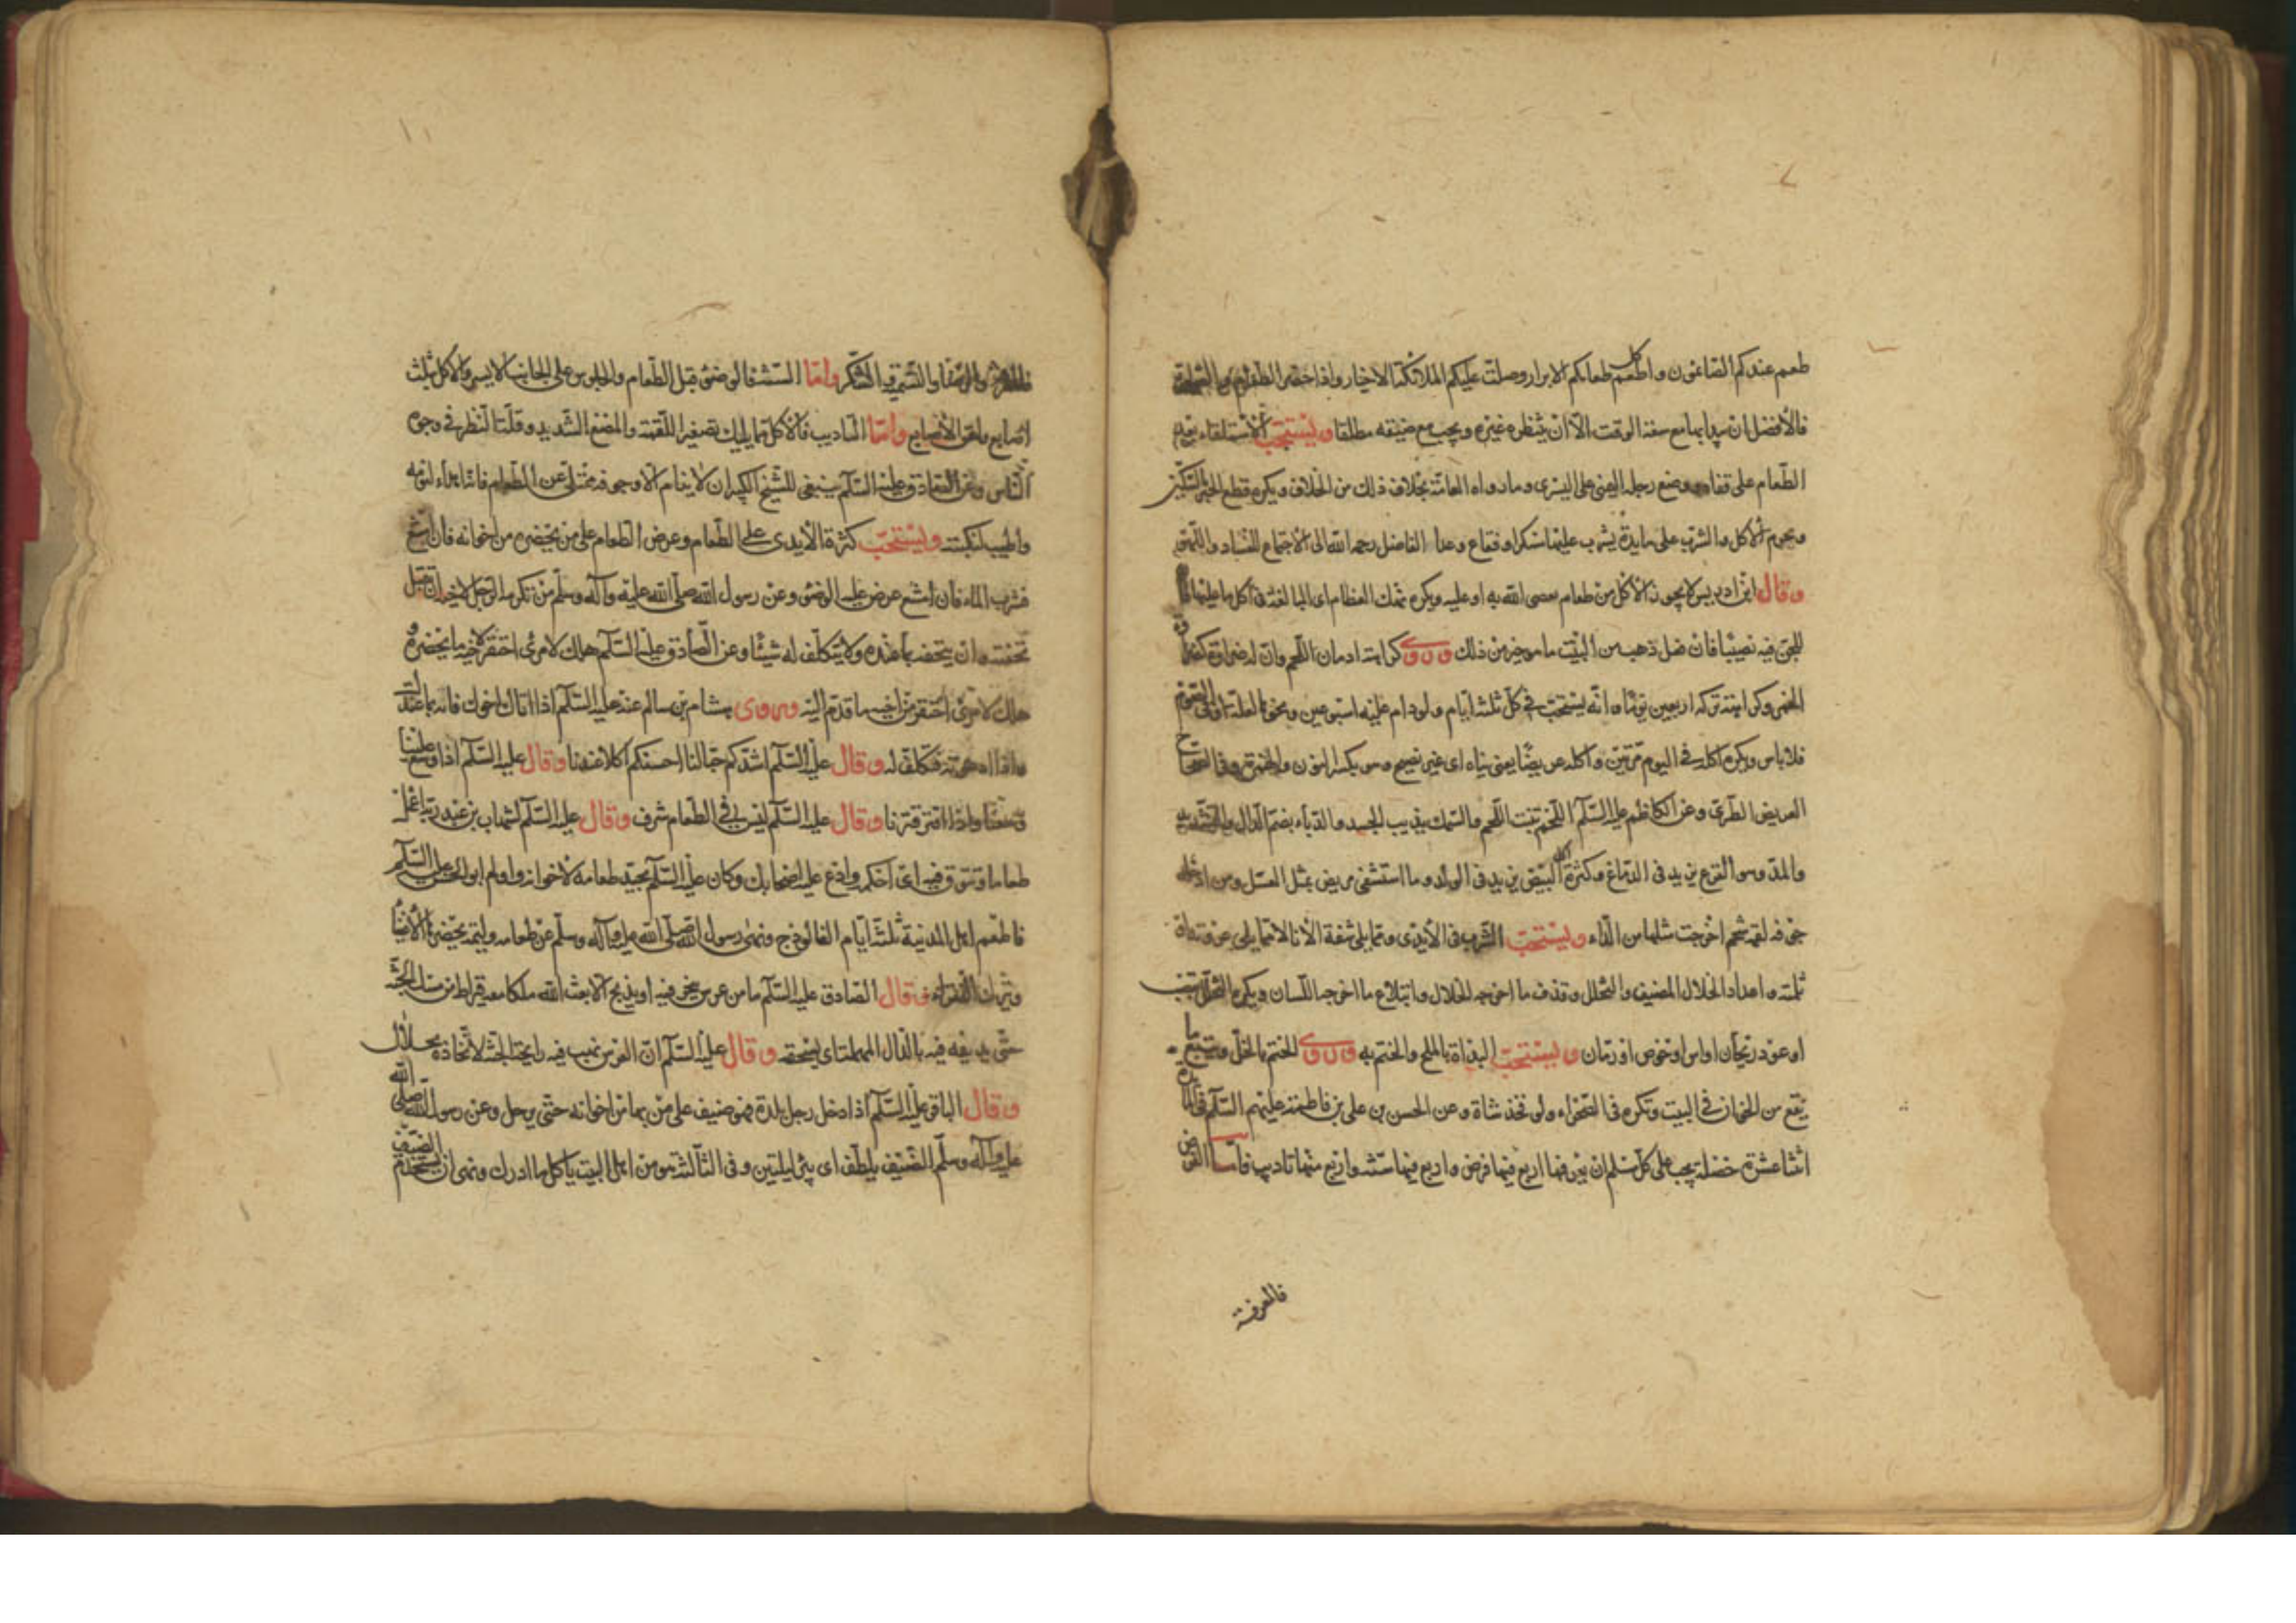 طعم عندكم الصائمون واكل طعامكم الابرار وصلت عليكم الملائكة الاخيار واذا حضر الطعام والصلوة
فالأفضل ان يبدا بها مع سعة الوقت الا ان ينتظره غيره ويجب مع ضيقه مطلقا ويستحب الاستلقاء بعد
الطعام على قفاه ووضع رجله اليمنى على اليسرى وما رواه العامة بخلاف ذلك من الخلاف ويكره قطع الخبز بالسكين
ويحرم الاكل والشرب على مايدة يشرب عليها مسكرا وفقاع وعدا الفاضل رحمه الله الى الاجتماع للفساد واللهو
وقال ابن ادريس لا يجوز الاكل من طعام يعصى الله به او عليه ويكره نهك العظام اى المبالغة فى اكل ما عليها فان
للجن فيه نصيبا فان فعل ذهب من البيت ما هو خير من ذلك وروى كراهة ادمان اللحم وان له ضراوة كضراوة
الخمر وكراهته تركه اربعين يوما وانه يستحب فى كل ثلثة ايام ولو دام عليه اسبوعين ونحوها لعلة او فى الصوم
فلا باس ويكره اكله فى اليوم مرتين واكله غريضا يعنى نياه اى غير نضيج وهو بكسر النون والهمزة وفى الصحاح
الغريض الطرى وعن الكاظم عليه السلم اللحم ينبت اللحم والسمك يذيب الجسد والدباء بضم الدال والتشديد
والمد وهو القرع يزيد فى الدماغ وكثرة اكل البيض يزيد فى الولد وما استشفى مريض بمثل العسل ومن ادخل
جوفه لقمة شحم اخرجت مثلها من الداء ويستحب الشرب فى الأيدى ومما يلى شفة الأناء لا مما يلى عروته او
ثلمته واعداد الخلال للضيف والتخلل وقذف ما اخرجه الخلال وابتلاع ما اخرجه اللسان ويكره التخلل بقصب
او عود ريحان او اس او خوص او رمان ويستحب البداة بالملح والختم به وروى الختم بالخل وتتبع ما
يقع من الخوان فى البيت وتكره فى الصحراء ولو فخذ شاة وعن الحسن بن على بن فاطمة عليهم السلم فى المايدة
اثنتا عشرة خصلة يجب على كل مسلم ان يعرفها اربع فيها فرض واربع فيها سنة واربع منها تاديب فاما الفرض
فالمعرفة
فالمعرفة والرضا والتسمية والشكر واما السنة فالوضوء قبل الطعام والجلوس على الجانب الايسر والاكل بثلث
اصابع ولعق الأصابع واما التاديب فالاكل مما يليك بتصغير اللقمة والمضغ الشديد وقلة النظر فى وجوه
الناس وعن الصادق عليه السلم ينبغى للشيخ الكبير ان لا ينام الا وجوفه ممتلى من الطعام فانه اهداء لنومه
واطيب لنكهته ويستحب كثرة الأيدى على الطعام وعرض الطعام على من يحضره من اخوانه فان امتنع
فشرب الماء فان امتنع عرض عليه الوضوء وعن رسول الله صلى الله عليه وآله وسلم من تكرمة الرجل لاخيه ان يقبل
تحفته وان يتحفه بما عنده ولا يتكلف له شيئا وعن الصادق عليه السلم هلك لامرئ احتقر لاخيه ما يحضره و
هلك لامرئ احتقر من اخيه ما قدم اليه وروى هشام بن سالم عنه عليه السلم اذا اتاك اخوك فاته بما عندك
واذا دعوته فتكلف له وقال عليه السلم اشدكم حبا لنا احسنكم اكلا عندنا وقال عليه السلم اذا وسع علينا
وسعنا واذا قتر قترنا وقال عليه السلم ليس فى الطعام شرف وقال عليه السلم لشهاب بن عبد ربه اعمل
طعاما وتنوق فيه اى احكمه وادع عليه اصحابك وكان عليه السلم يجيد طعامه لاخوانه واولم ابو الحسن عليه السلم
فاطعم اهل المدينة ثلثة ايام الفالوذج ونهى رسول الله صلى الله عليه وآله وسلم عن طعام وليمة يحضره الأغنياء
ويترك الفقراء وقال الصادق عليه السلم ما من عرس ينحر فيه او يذبح الا بعث الله ملكا معه قيراط من مسك الجنة
حتى يديفه فيه بالدال المهملة اى يسحقه وقال عليه السلم ان العرس تهب فيه رايحة الجنة لاتخاذه بحلال
وقال الباقر عليه السلم اذا دخل رجل بلدة فهو ضيف على من بها من اخوانه حتى يرحل وعن رسول الله صلى الله
عليه وآله وسلم الضيف يلطف اى يبر ليلتين وفى الثالثة هو من اهل البيت ياكل ما ادرك ونهى ان يستخدم الضيف